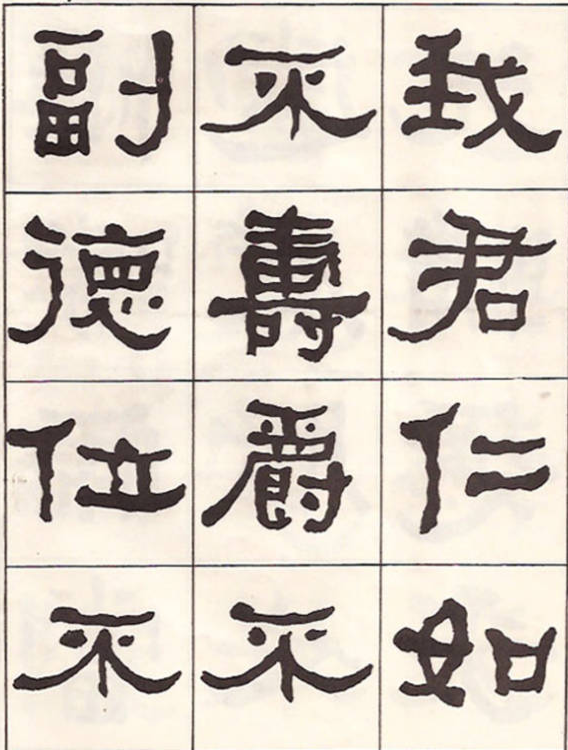 我君仁如
不壽爵不
副德位不